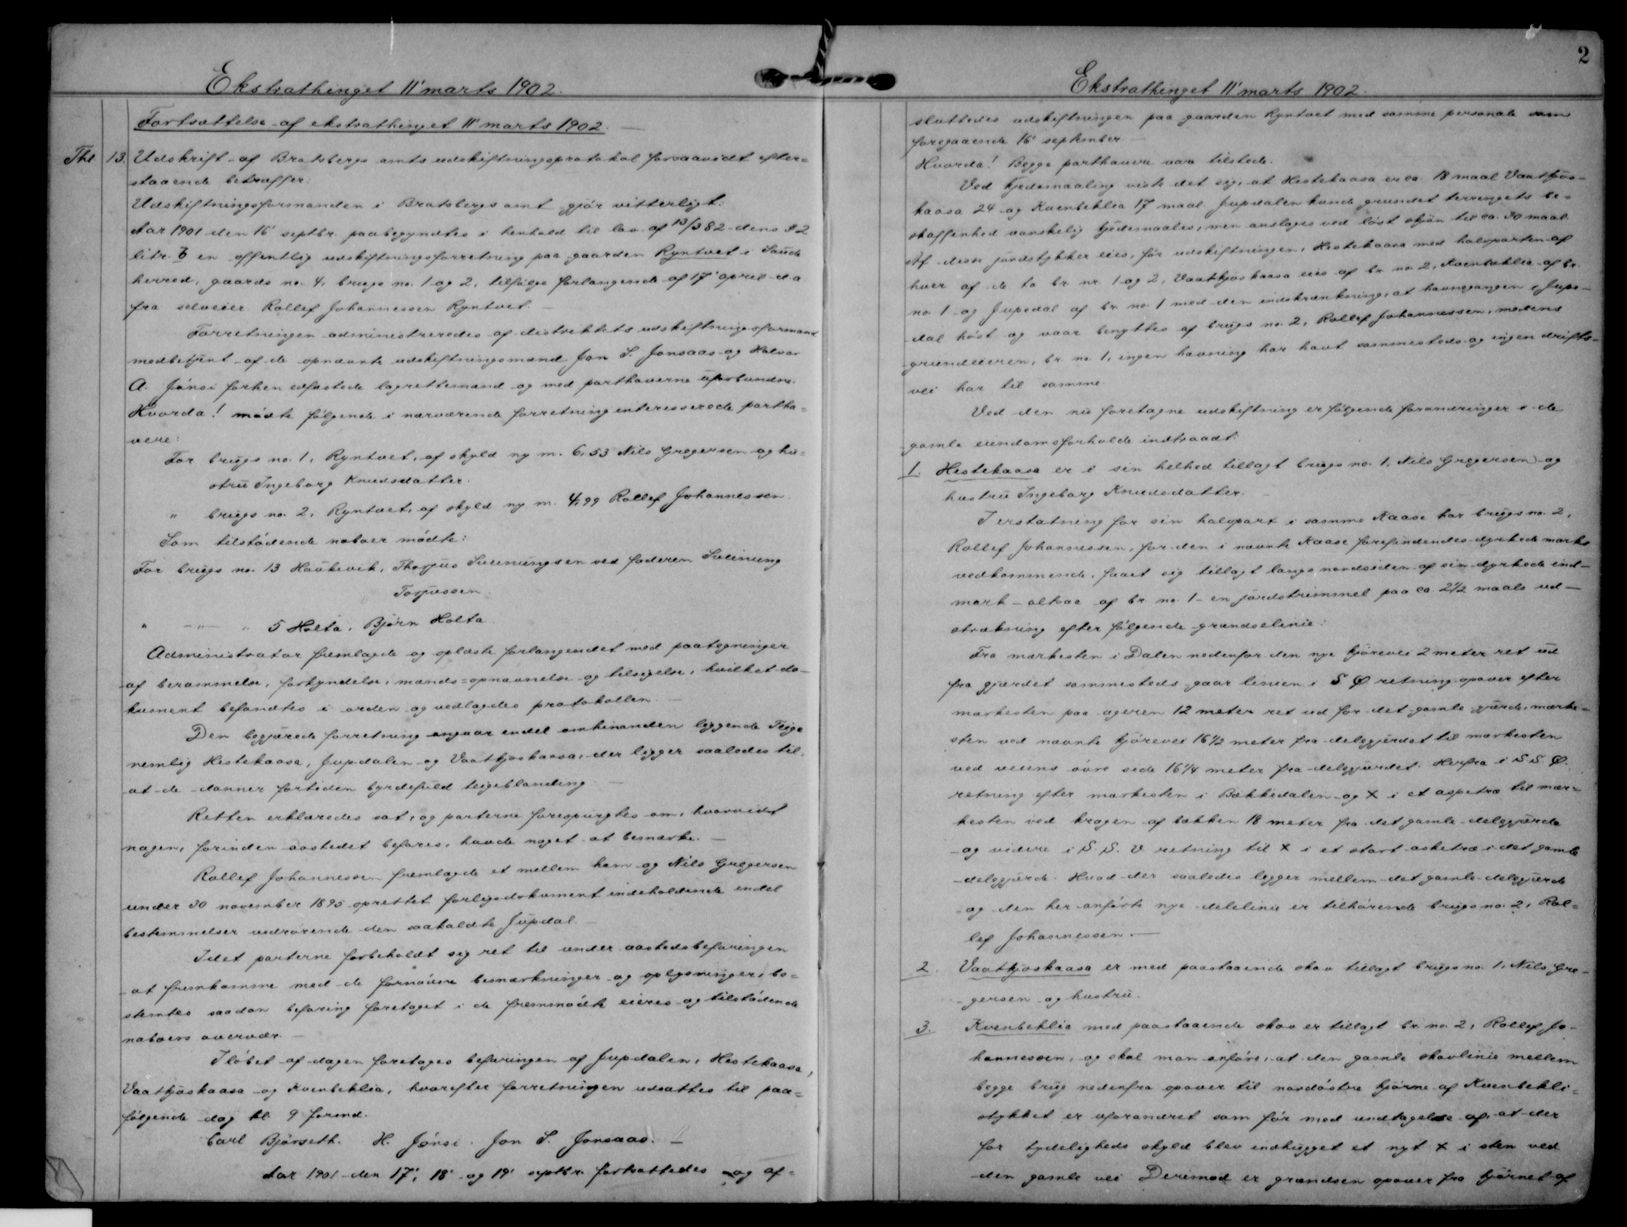 Ekstrathinget 11' marts 1902.
Fortsættelse af ekstrathinget 11' marts 1902.
Thl. 13. Udskrift af Bratsbergs amts udskiftningsprotokol forsaavidt efter=
staaende betræffer:
Udskiftningsformanden i Bratsbergs amt gjør vitterligt:
Aar 1901 den 16' septbr. paabegyndtes i henhold til lov af 13/3 82 dens § 2
litr. b en offentlig udskiftningsforretning paa gaarden Ryntvet i Saude
herred, gaards no. 4, brugs no. 1 og 2, tilfølge forlangende af 17' april d.a
fra selveier Rollef Johannessen Ryntvet.
Forretningen administreredes af distriktets udskiftningsformand
medbetjent af de opnævnte udskiftningsmænd Jon S. Jonsaas og Halvor
A. Jønsi forhen edfæstede lagrettemænd og med parthaverne uforbundne.
Hvorda! mødte følgende i nærværende forretning interesserede partha=
vere:
For brugs no. 1, Ryntvet, af skyld ny m. 6,53 Nils Gregersen og hu=
stru Ingeborg Knudsdatter.
" brugs no. 2, Ryntvet, af skyld ny m. 4,99 Rollef Johannessen.
Som tilstødende naboer mødte:
For brugs no. 13 Haukvik, Thorjus Sveinungsen ved faderen Sveinung
Torjussen.
" —"— " 5 Holta, Bjørn Holta.
Administrator fremlagde og oplæste forlangendet med paategninger
af berammelse, forkyndelse, mænds=opnævnelse og tilsigelse, hvilket do-
kument befandtes i orden og vedlagdes protokollen. —
Den begjærede forretning angaar endel omhinanden liggende Teige
nemlig Hestekaasa, Jupdalen og Vaatkjøskaasa, der ligger saaledes til,
at de danner fortiden byrdefuld teigeblanding —
Retten erklæredes sat, og parterne forespurgtes om, hvorvidt
nogen, forinden aastedet befares, havde noget at bemærke. —
Rollef Johannessen fremlagde et mellem ham og Nils Gregersen
under 30 november 1895 oprettet forligsdokument indeholdende endel
bestemmelser vedrørende den saakaldte Jupdal. —
Idet parterne forbeholdt sig ret til under aastedsbefaringen
at fremkomme med de fornødne bemærkninger og oplysninger, be=
stemtes saadan befaring foretaget i de fremmødte eieres og tilstødende
naboers overvær. —
I løbet af dagen foretages befaringen af Jupdalen, Hestekaasa,
Vaatkjøskaasa og Kvenbeklia, hvorefter forretningen udsattes til paa=
følgende dag kl. 9 formd.
Carl Bjørseth. H. Jønsi. Jon S. Jonsaas. —
Aar 1901 den 17', 18' og 19' septbr. fortsattedes og af=
2
Ekstrathinget 11' marts 1902.
sluttedes udskiftningen paa gaarden Ryntvet med samme personale som
foregaaende 16' september
Hvorda! Begge parthavere var tilstede.
Ved kjedemaaling viste det sig, at Hestekaasa er ca. 18 maal Vaatkjøs-
kaasa 24 og Kvenbeklia 17 maal. Jupdalen kunde grundet terrengets be-
skaffenhed vanskelig kjedemaales, men anslages ved løst skjøn til ca. 30 maal.
Af disse jordstykker eies, før udskiftningen, Hestekaasa med halvparten af
hver af de to br. nr. 1 og 2, Vaatkjøskaasa eies af br. no. 2, Kvenbeklia af br.
no. 1 og Jupedal af br. no. 1 med den indskrænkning, at havnegangen i Jup-
dal høst og vaar benyttes af brugs no. 2, Rollef Johannessen, medens
grundeieren, br. no. 1, ingen havning har havt sammesteds og ingen drifts-
vei har til samme.
Ved den nu foretagne udskiftning er følgende forandringer i de
gamle eiendomsforholde indtraadt:
1. Hestekaasa er i sin helhed tillagt brugs no. 1, Nils Gregersen og
hustru Ingeborg Knudsdatter.
I erstatning for sin halvpart i samme Kaase har brugs no. 2,
Rollef Johannessen, for den i nævnte Kaase forefindendes dyrkede marks
vedkommende, faaet sig tillagt langs nordsiden af sin dyrkede ind-
mark — altsaa af br. no. 1 — en jordstrimmel paa ca. 2½ maals ud—
strækning efter følgende grændselinie:
Fra mærkesten i Dalen nedenfor den nye kjørevei 2 meter ret ud
fra gjærdet sammesteds gaar linien i S Ø. retning opover efter
mærkesten paa ageren 12 meter ret ud for det gamle gjærde, mærke=
sten ved nævnte kjørevei 16½ meter fra delegjærdet til mærkesten
ved veiens øvre side 16¼ meter fra delegjærdet. Herfra i S S Ø.
retning efter mærkesten i Bækkedalen og X i et aspetræ til mær=
kesten ved krogen af bækken 18 meter fra det gamle delegjærde
og videre i S. S. V retning til X i et stort asketræ i det gamle
delegjærde. Hvad der saaledes ligger mellem det gamle delegjærde
og den her anførte nye delelinie er tilhørende brugs no. 2, Rol=
lef Johannessen. —
2. Vaatkjøskaasa er med paastaaende skov tillagt brugs no. 1, Nils Gre-
gersen og hustru.
3. Kvenbeklia med paastaaende skov er tillagt br. no. 2, Rollef Jo-
hannessen, og skal man anføre, at den gamle skovlinie mellem
begge brug nedenfra opover til nordøstre hjørne af Kvenbekli=
stykket er uforandret som før med undtagelse af, at der
for tydeligheds skyld blev indhugget et nyt X i sten ved
den gamle vei Derimod er grændsen opover fra hjørnet af